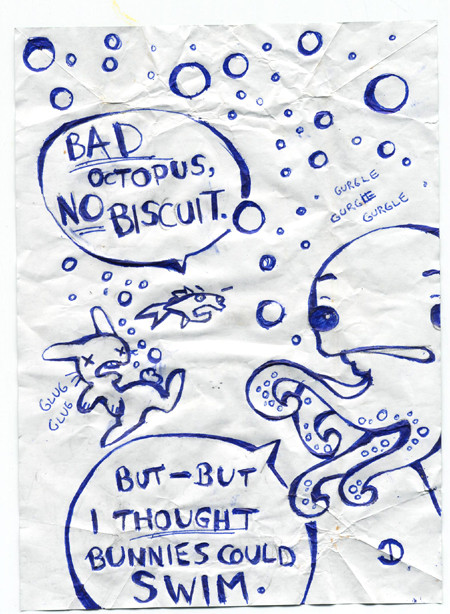 BAD
OCTOPUS,
NO BISCUIT.
GURGLE
GURGLE
GURGLE
GLUG
GLUG
BUT-BUT
I THOUGHT
BUNNIES COULD
SWIM.